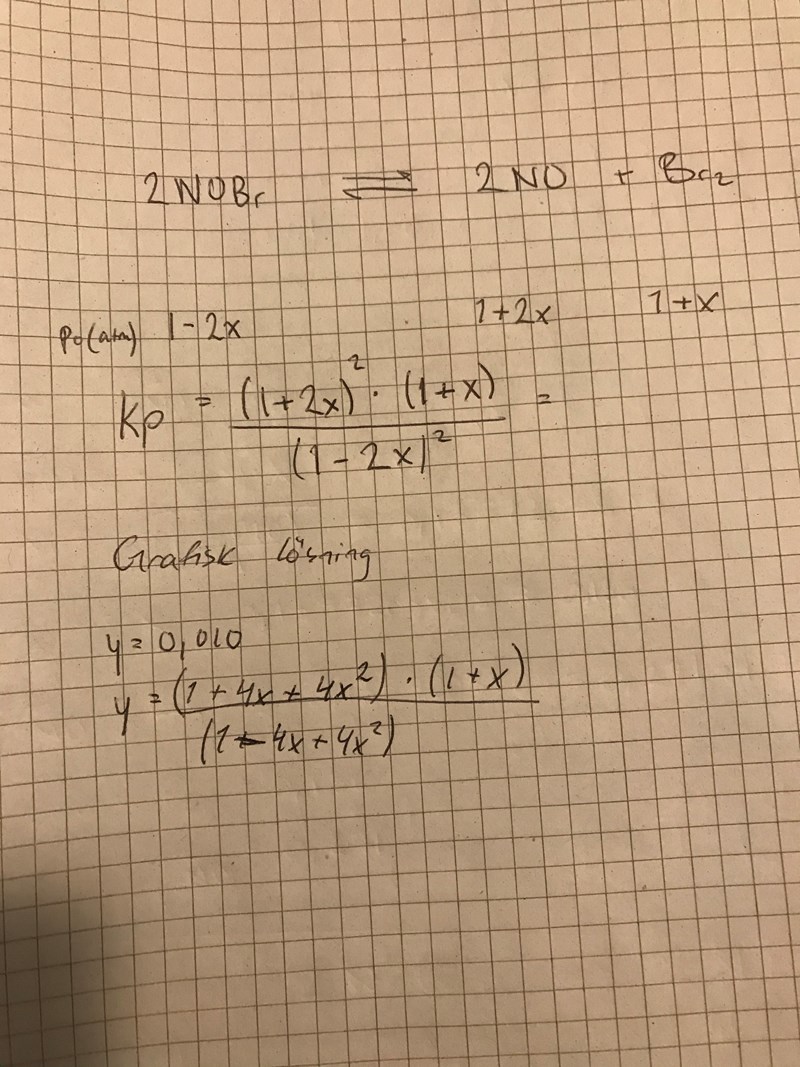 2NOBr ⇌ 2NO + Br₂
P₀(atm) 1-2x 1+2x 1+x
Kp = (1+2x)² · (1+x) / (1-2x)² =
Grafisk lösning
y = 0,010
y = (1+4x+4x²) · (1+x) / (1-4x+4x²)